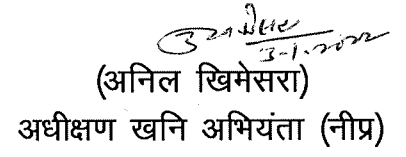 3-1-2022
(अनिल खिमेसरा)
अधीक्षण खनि अभियंता (नीप्र)